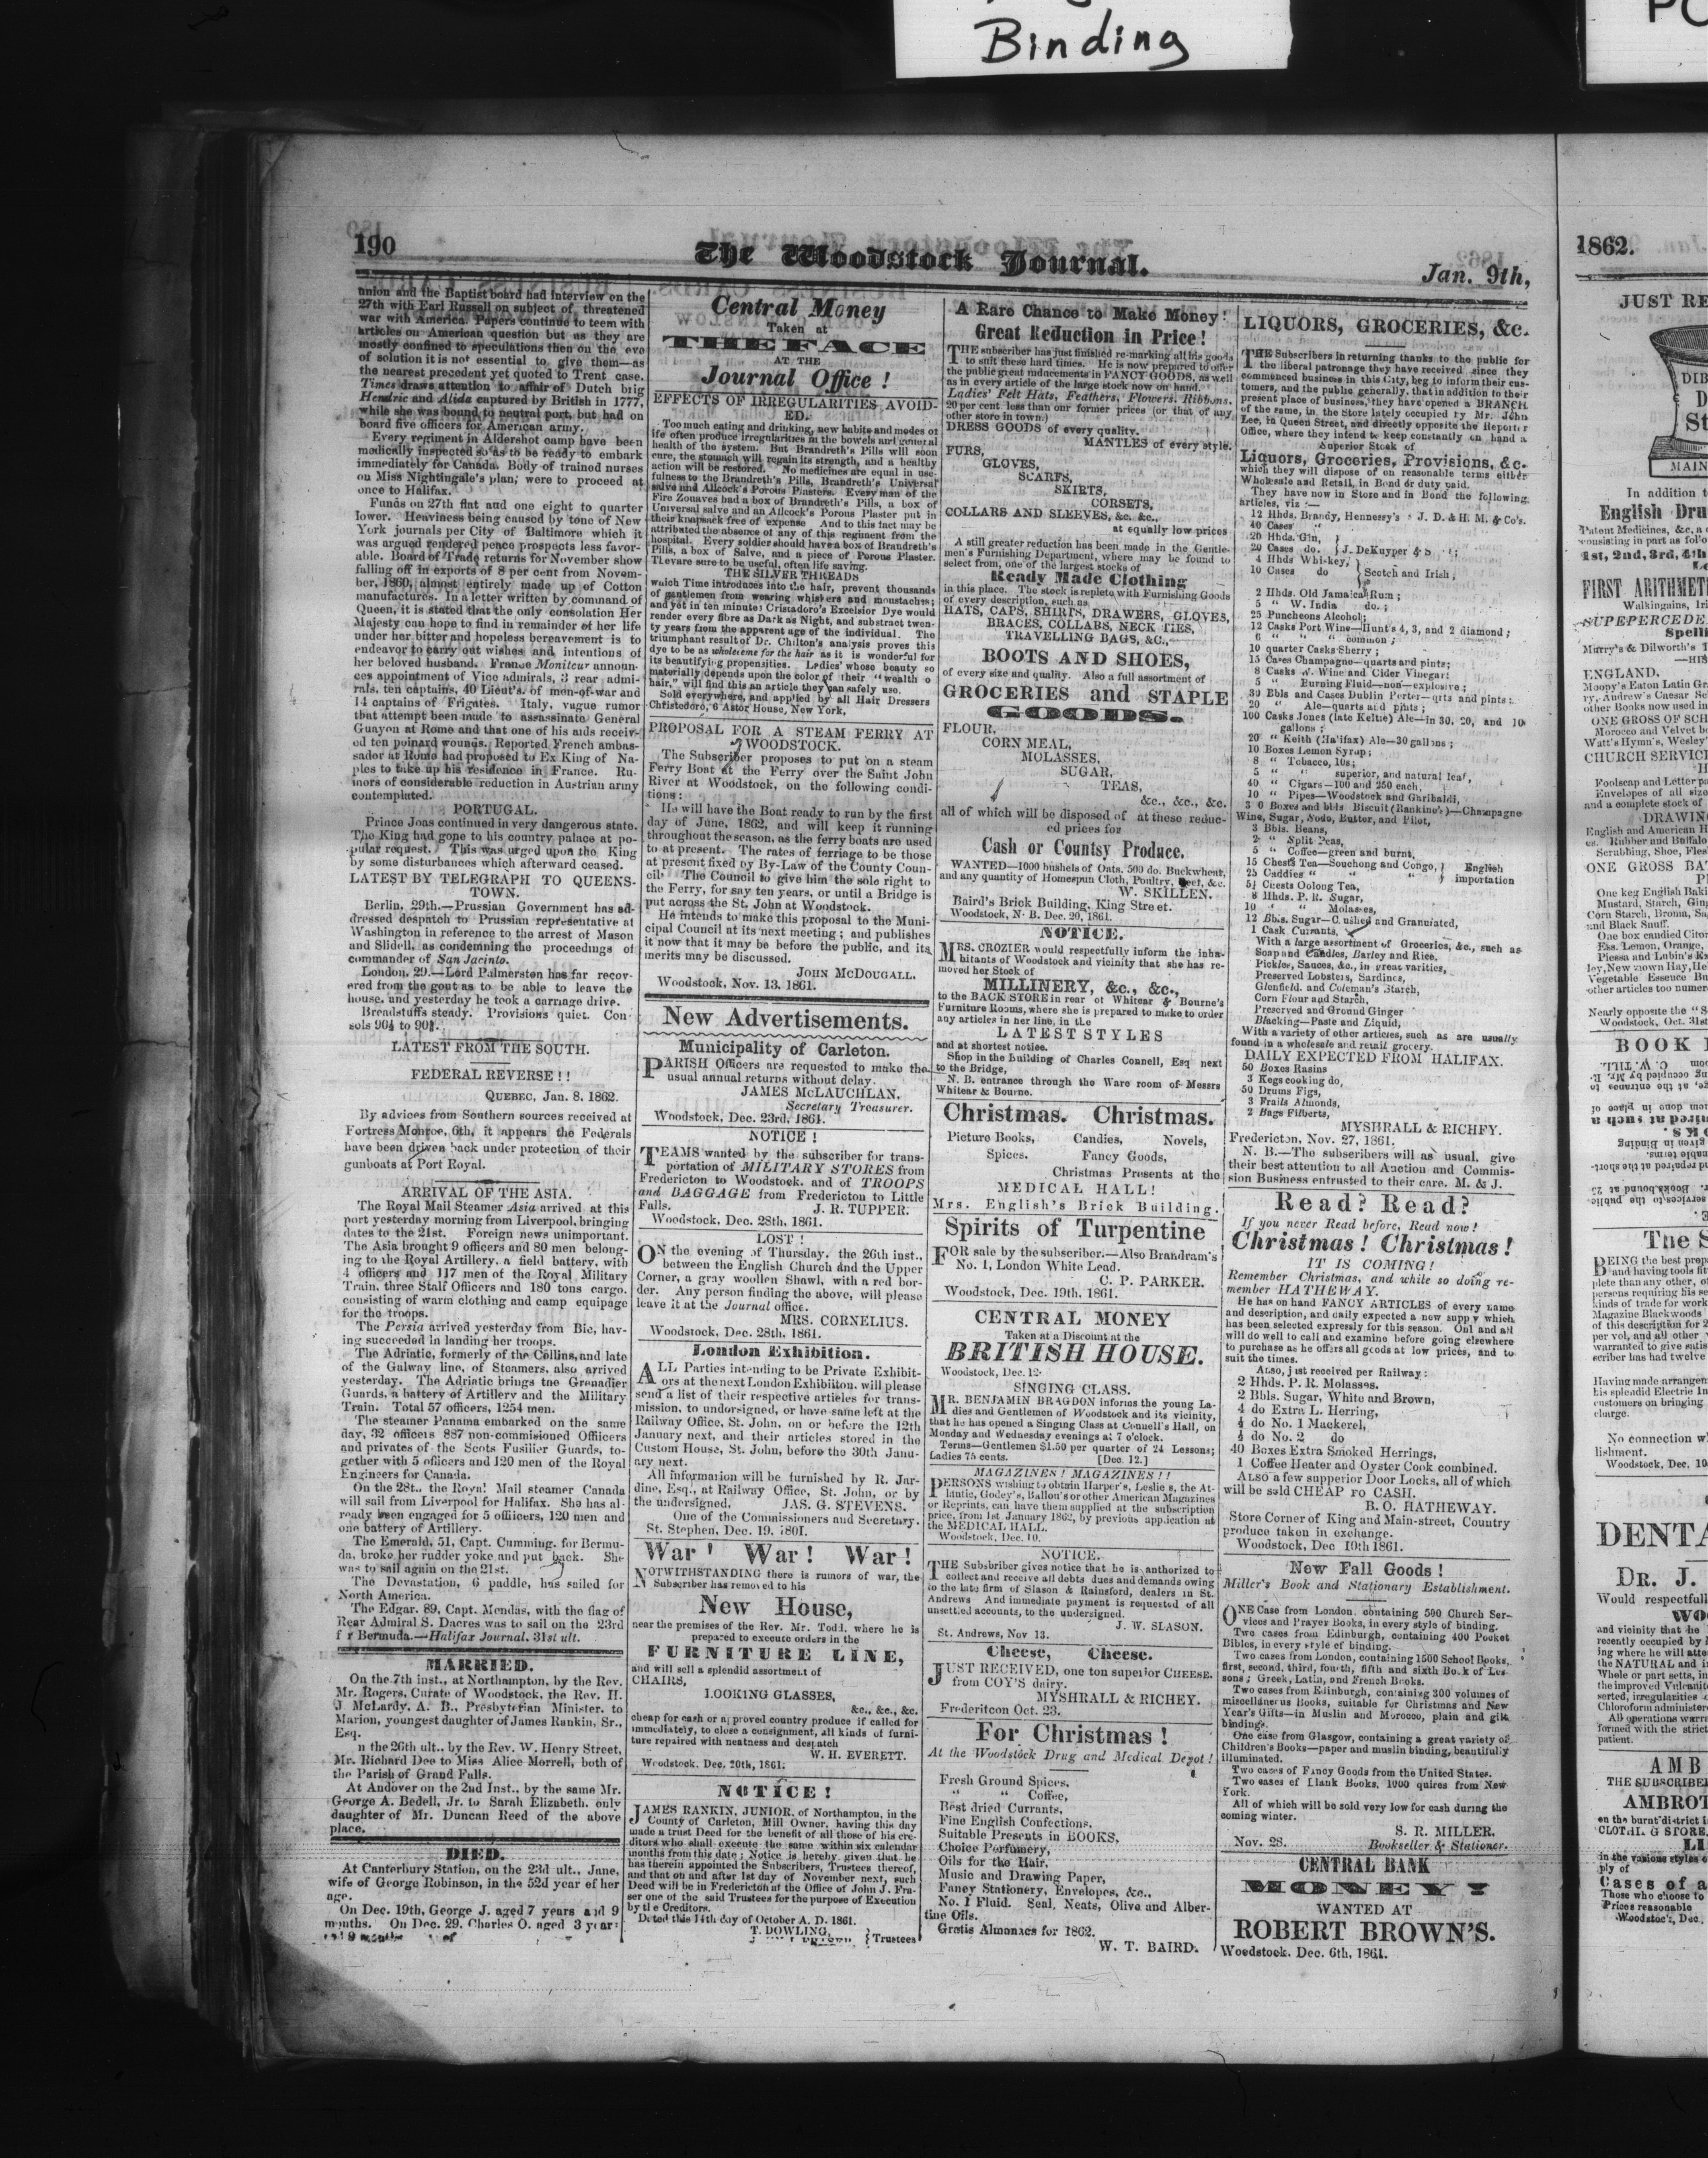 Binding
190
The Woodstock Journal.
Jan. 9th,
union and the Baptist board had interview on the
27th with Earl Russell on subject of threatened
war with America. Papers continue to teem with
articles on American question but as they are
mostly confined to speculations then on the eve
of solution it is not essential to give them—as
the nearest precedent yet quoted to Trent case.
Times draws attention to affair of Dutch brig
Hendric and Alida captured by British in 1777,
while she was bound to neutral port, but had on
board five officers for American army.
Every regiment in Aldershot camp have been
medically inspected so as to be ready to embark
immediately for Canada. Body of trained nurses
on Miss Nightingale's plan, were to proceed at
once to Halifax.
Funds on 27th flat and one eight to quarter
lower. Heaviness being caused by tone of New
York journals per City of Baltimore which it
was argued rendered peace prospects less favor-
able. Board of Trade returns for November show
falling off in exports of 8 per cent from Novem-
ber, 1860, almost entirely made up of Cotton
manufactures. In a letter written by command of
Queen, it is stated that the only consolation Her
Majesty can hope to find in remainder of her life
under her bitter and hopeless bereavement is to
endeavor to carry out wishes and intentions of
her beloved husband. France Moniteur announ-
ces appointment of Vice admirals, 3 rear admi-
rals, ten captains, 40 Lieut's. of men-of-war and
14 captains of Frigates. Italy, vague rumor
that attempt been made to assassinate General
Guayon at Rome and that one of his aids receiv-
ed ten poinard wounds. Reported French ambas-
sador at Rome had proposed to Ex King of Na-
ples to take up his residence in France. Ru-
mors of considerable reduction in Austrian army
contemplated.
PORTUGAL.
Prince Joas continued in very dangerous state.
The King had gone to his country palace at po-
pular request. This was urged upon the King
by some disturbances which afterward ceased.
LATEST BY TELEGRAPH TO QUEENS-
TOWN.
Berlin, 29th.—Prussian Government has ad-
dressed despatch to Prussian representative at
Washington in reference to the arrest of Mason
and Slidell, as condemning the proceedings of
commander of San Jacinto.
London, 29.—Lord Palmerston has far recov-
ered from the gout as to be able to leave the
house, and yesterday he took a carriage drive.
Breadstuffs steady. Provisions quiet. Con
sols 90½ to
LATEST FROM THE SOUTH.
FEDERAL REVERSE ! !
QUEBEC, Jan. 8, 1862.
By advices from Southern sources received at
Fortress Monroe, 6th, it appears the Federals
have been driven back under protection of their
gunboats at Port Royal.
ARRIVAL OF THE ASIA.
The Royal Mail Steamer Asia arrived at this
port yesterday morning from Liverpool, bringing
dates to the 21st. Foreign news unimportant.
The Asia brought 9 officers and 80 men belong-
ing to the Royal Artillery, a field battery, with
4 officers and 117 men of the Royal Military
Train, three Staff Officers and 180 tons cargo,
consisting of warm clothing and camp equipage
for the troops.
The Persia arrived yesterday from Bic, hav-
ing succeeded in landing her troops.
The Adriatic, formerly of the Collins, and late
of the Galway line, of Steamers, also arrived
yesterday. The Adriatic brings tne Grenadier
Guards, a battery of Artillery and the Military
Train. Total 57 officers, 1254 men.
The steamer Panama embarked on the same
day, 32 officers 887 non-commisioned Offiicers
and privates of the Scots Fusilier Guards, to-
gether with 5 officers and 120 men of the Royal
Engineers for Canada.
On the 28t., the Royal Mail steamer Canada
will sail from Liverpool for Halifax. She has al-
ready been engaged for 5 officers, 120 men and
one battery of Artillery.
The Emerald, 51, Capt. Cumming, for Bermu-
da, broke her rudder yoke and put back. She
was to sail again on the 21st.
The Devastation, 6 paddle, has sailed for
North America.
The Edgar, 89, Capt. Mendas, with the flag of
Rear Admiral S. Dacres was to sail on the 23rd
f r Bermuda.—Halifax Journal, 31st ult.
MARRIED.
On the 7th inst., at Northampton, by the Rev.
Mr. Rogers, Curate of Woodstock, the Rev. H.
J McLardy, A. B., Presbyterian Minister, to
Marion, youngest daughter of James Rankin, Sr.,
Esq.
n the 26th ult., by the Rev. W. Henry Street,
Mr. Richard Dee to Miss Alice Morrell, both of
the Parish of Grand Falls.
At Andover on the 2nd Inst., by the same Mr.
George A. Bedell, Jr. to Sarah Elizabeth, only
daughter of Mr. Duncan Reed of the above
place.
DIED.
At Canterbury Station, on the 23d ult., Jane,
wife of George Robinson, in the 52d year of her
age.
On Dec. 19th, George J. aged 7 years and 9
months. On Dec. 29, Charles O. aged 3 years
Central Money
Taken at
THE FACE
AT THE
Journal Office !
EFFECTS OF IRREGULARITIES AVOID-
ED.
Too much eating and drinking, new habits and modes of
life often produce irregularities in the bowels and general
health of the system. But Brandreth's Pills will soon
cure, the stomach will regain its strength, and a healthy
action will be restored. No medicines are equal in use-
fulness to the Brandreth's Pills, Brandreth's Universal
salve and Allcock's Porous Plasters. Every man of the
Fire Zouaves had a box of Brandreth's Pills, a box of
Universal salve and an Allcock's Porous Plaster put in
their knapsack free of expense And to this fact may be
attributed the absence of any of this regiment from the
hospital. Every soldier should have a box of Brandreth's
Pills, a box of Salve, and a piece of Porous Plaster.
They are sure to be useful, often life saving.
THE SILVER THREADS
which Time introduces into the hair, prevent thousands
of gentlemen from wearing whiskers and moustaches;
and yet in ten minutes Cristadoro's Excelsior Dye would
render every fibre as Dark as Night, and substract twen-
ty years from the apparent age of the individual. The
triumphant result of Dr. Chilton's analysis proves this
dye to be as wholesome for the hair as it is wonderful for
its beautifying propensities. Ladies' whose beauty so
materially depends upon the color of their "wealth o
hair," will find this an article they can safely use.
Sold everywhere, and applied by all Hair Dressers
Christodoro, 6 Astor House, New York,
PROPOSAL FOR A STEAM FERRY AT
WOODSTOCK.
The Subscriber proposes to put on a steam
Ferry Boat at the Ferry over the Saint John
River at Woodstock, on the following condi-
tions:
He will have the Boat ready to run by the first
day of June, 1862, and will keep it running
throughout the season, as the ferry boats are used
to at present. The rates of ferriage to be those
at present fixed by By-Law of the County Coun-
cil. The Council to give him the sole right to
the Ferry, for say ten years, or until a Bridge is
put across the St. John at Woodstock.
He intends to make this proposal to the Muni-
cipal Council at its next meeting; and publishes
it now that it may be before the public, and its
merits may be discussed.
JOHN McDOUGALL.
Woodstock, Nov. 13, 1861.
New Advertisements.
Municipality of Carleton.
PARISH Officers are requested to make the
usual annual returns without delay.
JAMES McLAUCHLAN,
Secretary Treasurer.
Woodstock, Dec. 23rd, 1861.
NOTICE !
TEAMS wanted by the subscriber for trans-
portation of MILITARY STORES from
Fredericton to Woodstock, and of TROOPS
and BAGGAGE from Fredericton to Little
Falls. J. R. TUPPER.
Woodstock, Dec. 28th, 1861.
LOST !
ON the evening of Thursday, the 26th inst.,
between the English Church and the Upper
Corner, a gray woollen Shawl, with a red bor-
der. Any person finding the above, will please
leave it at the Journal office.
MRS. CORNELIUS.
Woodstock, Dec. 28th, 1861.
London Exhibition.
ALL Parties intending to be Private Exhibit-
ors at the next London Exhibiiton, will please
send a list of their respective articles for trans-
mission, to undorsigned, or have same left at the
Railway Office, St. John, on or before the 12th
January next, and their articles stored in the
Custom House, St. John, before the 30th Janu-
ary next.
All information will be furnished by R. Jar-
dine, Esq., at Railway Office, St. John, or by
the undersigned, JAS. G. STEVENS.
One of the Commissioners and Secretary.
St. Stephen, Dec. 19, 1801.
War ! War ! War !
NOTWITHSTANDING there is rumors of war, the
Subscriber has removed to his
New House,
near the premises of the Rev. Mr. Todd, where he is
prepared to execute orders in the
FURNITURE LINE,
and will sell a splendid assortment of
CHAIRS,
LOOKING GLASSES,
&c., &c., &c.
cheap for cash or approved country produce if called for
immediately, to close a consignment, all kinds of furni-
ture repaired with neatness and despatch
W. H. EVERETT.
Woodstock, Dec. 20th, 1861.
NOTICE !
JAMES RANKIN, JUNIOR, of Northampton, in the
County of Carleton, Mill Owner, having this day
made a trust Deed for the benefit of all those of his cre-
ditors who shall execute the same within six calendar
months from this date; Notice is hereby given that he
has therein appointed the Subscribers, Trustees thereof,
and that on and after 1st day of November next, such
Deed will be in Fredericton at the Office of John J. Fra-
ser one of the said Trustees for the purpose of Execution
by the Creditors.
Dated this 14th day of October A. D. 1861.
T. DOWLING,
} Trustees
A Rare Chance to Make Money!
Great Reduction in Price!
THE subscriber has just finished re-marking all his goods
to suit these hard times. He is now prepared to offer
the public great inducements in FANCY GOODS, as well
as in every article of the large stock now on hand.
Ladies' Felt Hats, Feathers, Flowers, Ribbons.
20 per cent. less than our former prices (or that of any
other store in town.)
DRESS GOODS of every quality.
MANTLES of every style.
FURS,
GLOVES,
SCARFS,
SKIRTS,
CORSETS,
COLLARS AND SLEEVES, &c. &c.,
at equally low prices
A still greater reduction has been made in the Gentle-
men's Furnishing Department, where may be found to
select from, one of the largest stocks of
Ready Made Clothing
in this place. The stock is replete with Furnishing Goods
of every description, such as
HATS, CAPS, SHIRTS, DRAWERS, GLOVES,
BRACES, COLLABS, NECK TIES,
TRAVELLING BAGS, &C.,
BOOTS AND SHOES,
of every size and quality. Also a full assortment of
GROCERIES and STAPLE
GOODS.
FLOUR,
CORN MEAL,
MOLASSES,
SUGAR,
TEAS,
&c., &c., &c.
all of which will be disposed of at these reduc-
ed prices for
Cash or Countsy Produce.
WANTED—1000 bushels of Oats, 500 do. Buckwheat,
and any quantity of Homespun Cloth, Poultry, Beef, &c.
W. SKILLEN.
Baird's Brick Building, King Street.
Woodstock, N. B. Dec. 20, 1861.
NOTICE.
MRS. CROZIER would respectfully inform the inha-
bitants of Woodstock and vicinity that she has re-
moved her Stock of
MILLINERY, &c., &c.,
to the BACK STORE in rear of Whitear & Bourne's
Furniture Rooms, where she is prepared to make to order
any articles in her line, in the
LATEST STYLES
and at shortest notice.
Shop in the Building of Charles Connell, Esq next
to the Bridge,
N. B. entrance through the Ware room of Messrs
Whitear & Bourne.
Christmas. Christmas.
Picture Books, Candies, Novels,
Spices. Fancy Goods,
Christmas Presents at the
MEDICAL HALL!
Mrs. English's Brick Building.
Spirits of Turpentine
FOR sale by the subscriber.—Also Brandram's
No. 1, London White Lead.
C. P. PARKER.
Woodstock, Dec. 19th, 1861.
CENTRAL MONEY
Taken at a Discount at the
BRITISH HOUSE.
Woodstock, Dec. 12.
SINGING CLASS.
MR. BENJAMIN BRAGDON informs the young La-
dies and Gentlemen of Woodstock and its vicinity,
that he has opened a Singing Class at Connell's Hall, on
Monday and Wednesday evenings at 7 o'clock.
Terms—Gentlemen $1.50 per quarter of 24 Lessons;
Ladies 75 cents. [Dec. 12.]
MAGAZINES! MAGAZINES!!
PERSONS wishing to obtain Harper's, Leslie s, the At-
lantic, Godey's, Ballou's or other American Magazines
or Reprints, can have them supplied at the subscription
price, from 1st January 1862, by previous application at
the MEDICAL HALL.
Woodstock, Dec. 10.
NOTICE.
THE Subsbriber gives notice that he is anthorized to
collect and receive all debts dues and demands owing
to the late firm of Slason & Rainsford, dealers in St.
Andrews And immediate payment is requested of all
unsettled accounts, to the undersigned.
J. W. SLASON.
St. Andrews, Nov 13.
Cheese, Cheese.
JUST RECEIVED, one ton superior CHEESE,
from COY'S dairy.
MYSHRALL & RICHEY.
Frederitcon Oct. 23.
For Christmas !
At the Woodstock Drug and Medical Depot !
Fresh Ground Spices,
" " Coffee,
Best dried Currants,
Fine English Confections,
Suitable Presents in BOOKS,
Choice Perfumery,
Oils for the Hair,
Music and Drawing Paper,
Fancy Stationery, Envelopes, &c.,
No. 1 Fluid. Seal, Neats, Olive and Alber-
tine Oils.
Gratis Almanacs for 1862.
W. T. BAIRD.
LIQUORS, GROCERIES, &c.
THE Subscribers in returning thanks to the public for
the liberal patronage they have received since they
commenced business in this City, beg to inform their cus-
tomers, and the public generally, that in addition to their
present place of business, they have opened a BRANCH
of the same, in the Store lately occupied by Mr. John
Lee, in Queen Street, and directly opposite the Reporter
Office, where they intend to keep constantly on hand a
Superior Stock of
Liquors, Groceries, Provisions, &c.
which they will dispose of on reasonable terms either
Wholesale and Retail, in Bond or duty paid.
They have now in Store and in Bond the following
articles, viz :—
12 Hhds. Brandy, Hennessy's, J. D. & H. M. & Co's.
40 Cases "
20 Hhds. Gin, }
20 Cases do. } J. DeKuyper & S
4 Hhds Whiskey, }
10 Cases do } Scotch and Irish,
2 Hhds. Old Jamaica Rum;
5 " W. India do.;
25 Puncheons Alcohol;
12 Casks Port Wine—Hunt's 4, 3, and 2 diamond;
6 " " " common;
10 quarter Casks Sherry;
15 Cases Champagne—quarts and pints;
8 Casks W. Wine and Cider Vinegar:
5 " Burning Fluid—non-explosive;
30 Bbls and Cases Dublin Porter—qrts and pints;
20 " Ale—quarts and pints;
100 Casks Jones (late Keltie) Ale—in 30, 20, and 10
gallons;
20 " Keith (Halifax) Ale—30 gallons;
10 Boxes Lemon Syrup;
8 " Tobacco, 10s;
5 " " superior, and natural leaf,
40 " Cigars—100 and 250 each,
10 " Pipes—Woodstock and Garibaldi,
3 0 Boxes and bbls Biscuit (Rankine's)—Champagne
Wine, Sugar, Soda, Butter, and Pilot,
3 Bbls. Beans,
2 " Split Peas,
5 " Coffee—green and burnt,
15 Chests Tea—Souchong and Congo, } English
25 Caddies " " " } importation
5½ Chests Oolong Tea,
8 Hhds. P. R. Sugar,
10 " Molasses,
12 Bbls. Sugar—Crushed and Granulated,
1 Cask Currants,
With a large assortment of Groceries, &c., such as
Soap and Candles, Barley and Rice,
Pickles, Sauces, &c., in great varities,
Preserved Lobsters, Sardines,
Glenfield. and Coleman's Starch,
Corn Flour and Starch,
Preserved and Ground Ginger
Blacking—Paste and Liquid,
With a variety of other articles, such as are usually
found in a wholesale and retail grocery.
DAILY EXPECTED FROM HALIFAX.
50 Boxes Rasins
3 Kegs cooking do,
50 Drums Figs,
3 Frails Almonds,
2 Bags Filberts,
MYSHRALL & RICHEY.
Fredericton, Nov. 27, 1861.
N. B.—The subscribers will as usual, give
their best attention to all Auction and Commis-
sion Business entrusted to their care. M. & J.
Read? Read?
If you never Read before, Read now!
Christmas! Christmas!
IT IS COMING!
Remember Christmas, and while so doing re-
member HATHEWAY.
He has on hand FANCY ARTICLES of every name
and description, and daily expected a new supp y which
has been selected expressly for this season. Onl and all
will do well to call and examine before going elsewhere
to purchase as he offers all goods at low prices, and to
suit the times.
Also, just received per Railway:
2 Hhds. P. R. Molasses,
2 Bbls. Sugar, White and Brown,
4 do Extra L. Herring,
½ do No. 1 Mackerel,
½ do No. 2 do
40 Boxes Extra Smoked Herrings,
1 Coffee Heater and Oyster Cook combined.
ALSO a few supperior Door Locks, all of which
will be sold CHEAP FO CASH.
B. O. HATHEWAY.
Store Corner of King and Main-street, Country
produce taken in exchange.
Woodstock, Dec 10th 1861.
New Fall Goods !
Miller's Book and Stationary Establishment.
ONE Case from London, containing 500 Church Ser-
vices and Prayer Books, in every style of binding.
Two cases from Edinburgh, containing 400 Pocket
Bibles, in every style of binding.
Two cases from London, containing 1500 School Books,
first, second, third, fourth, fifth and sixth Book of Les-
sons; Greek, Latin, and French Books.
Two cases from Edinburgh, containing 300 volumes of
miscellanerus Books, suitable for Christmas and New
Year's Gifts—in Muslin and Morocco, plain and gilt
bindings.
One case from Glasgow, containing a great variety of
Children's Books—paper and muslin binding, beautifully
illuminated.
Two cases of Fancy Goods from the United States.
Two cases of Blank Books, 1000 quires from New
York.
All of which will be sold very low for cash during the
coming winter.
S. R. MILLER.
Nov. 28. Bookseller & Stationer.
CENTRAL BANK
MONEY!
WANTED AT
ROBERT BROWN'S.
Woodstock, Dec. 6th, 1861.
1862.
JUST RE
MAIN
In addition
English Dru
1st, 2nd, 3rd, 4th
FIRST ARITHMET
SUPEPERCEDE
Spelli
ENGLAND.
ONE GROSS OF SCH
CHURCH SERVIC
DRAWIN
ONE GROSS BA
Nearly opposite the "S
Woodstock, Oct. 31st
BOOK
The S
No connection w
lishment.
Woodstock, Dec. 10
DENTA
DR. J.
Would respectfull
AMB
THE SUBSCRIBE
AMBROT
Cases of a
Those who choose to
Prices reasonable
Woodstock, Dec.